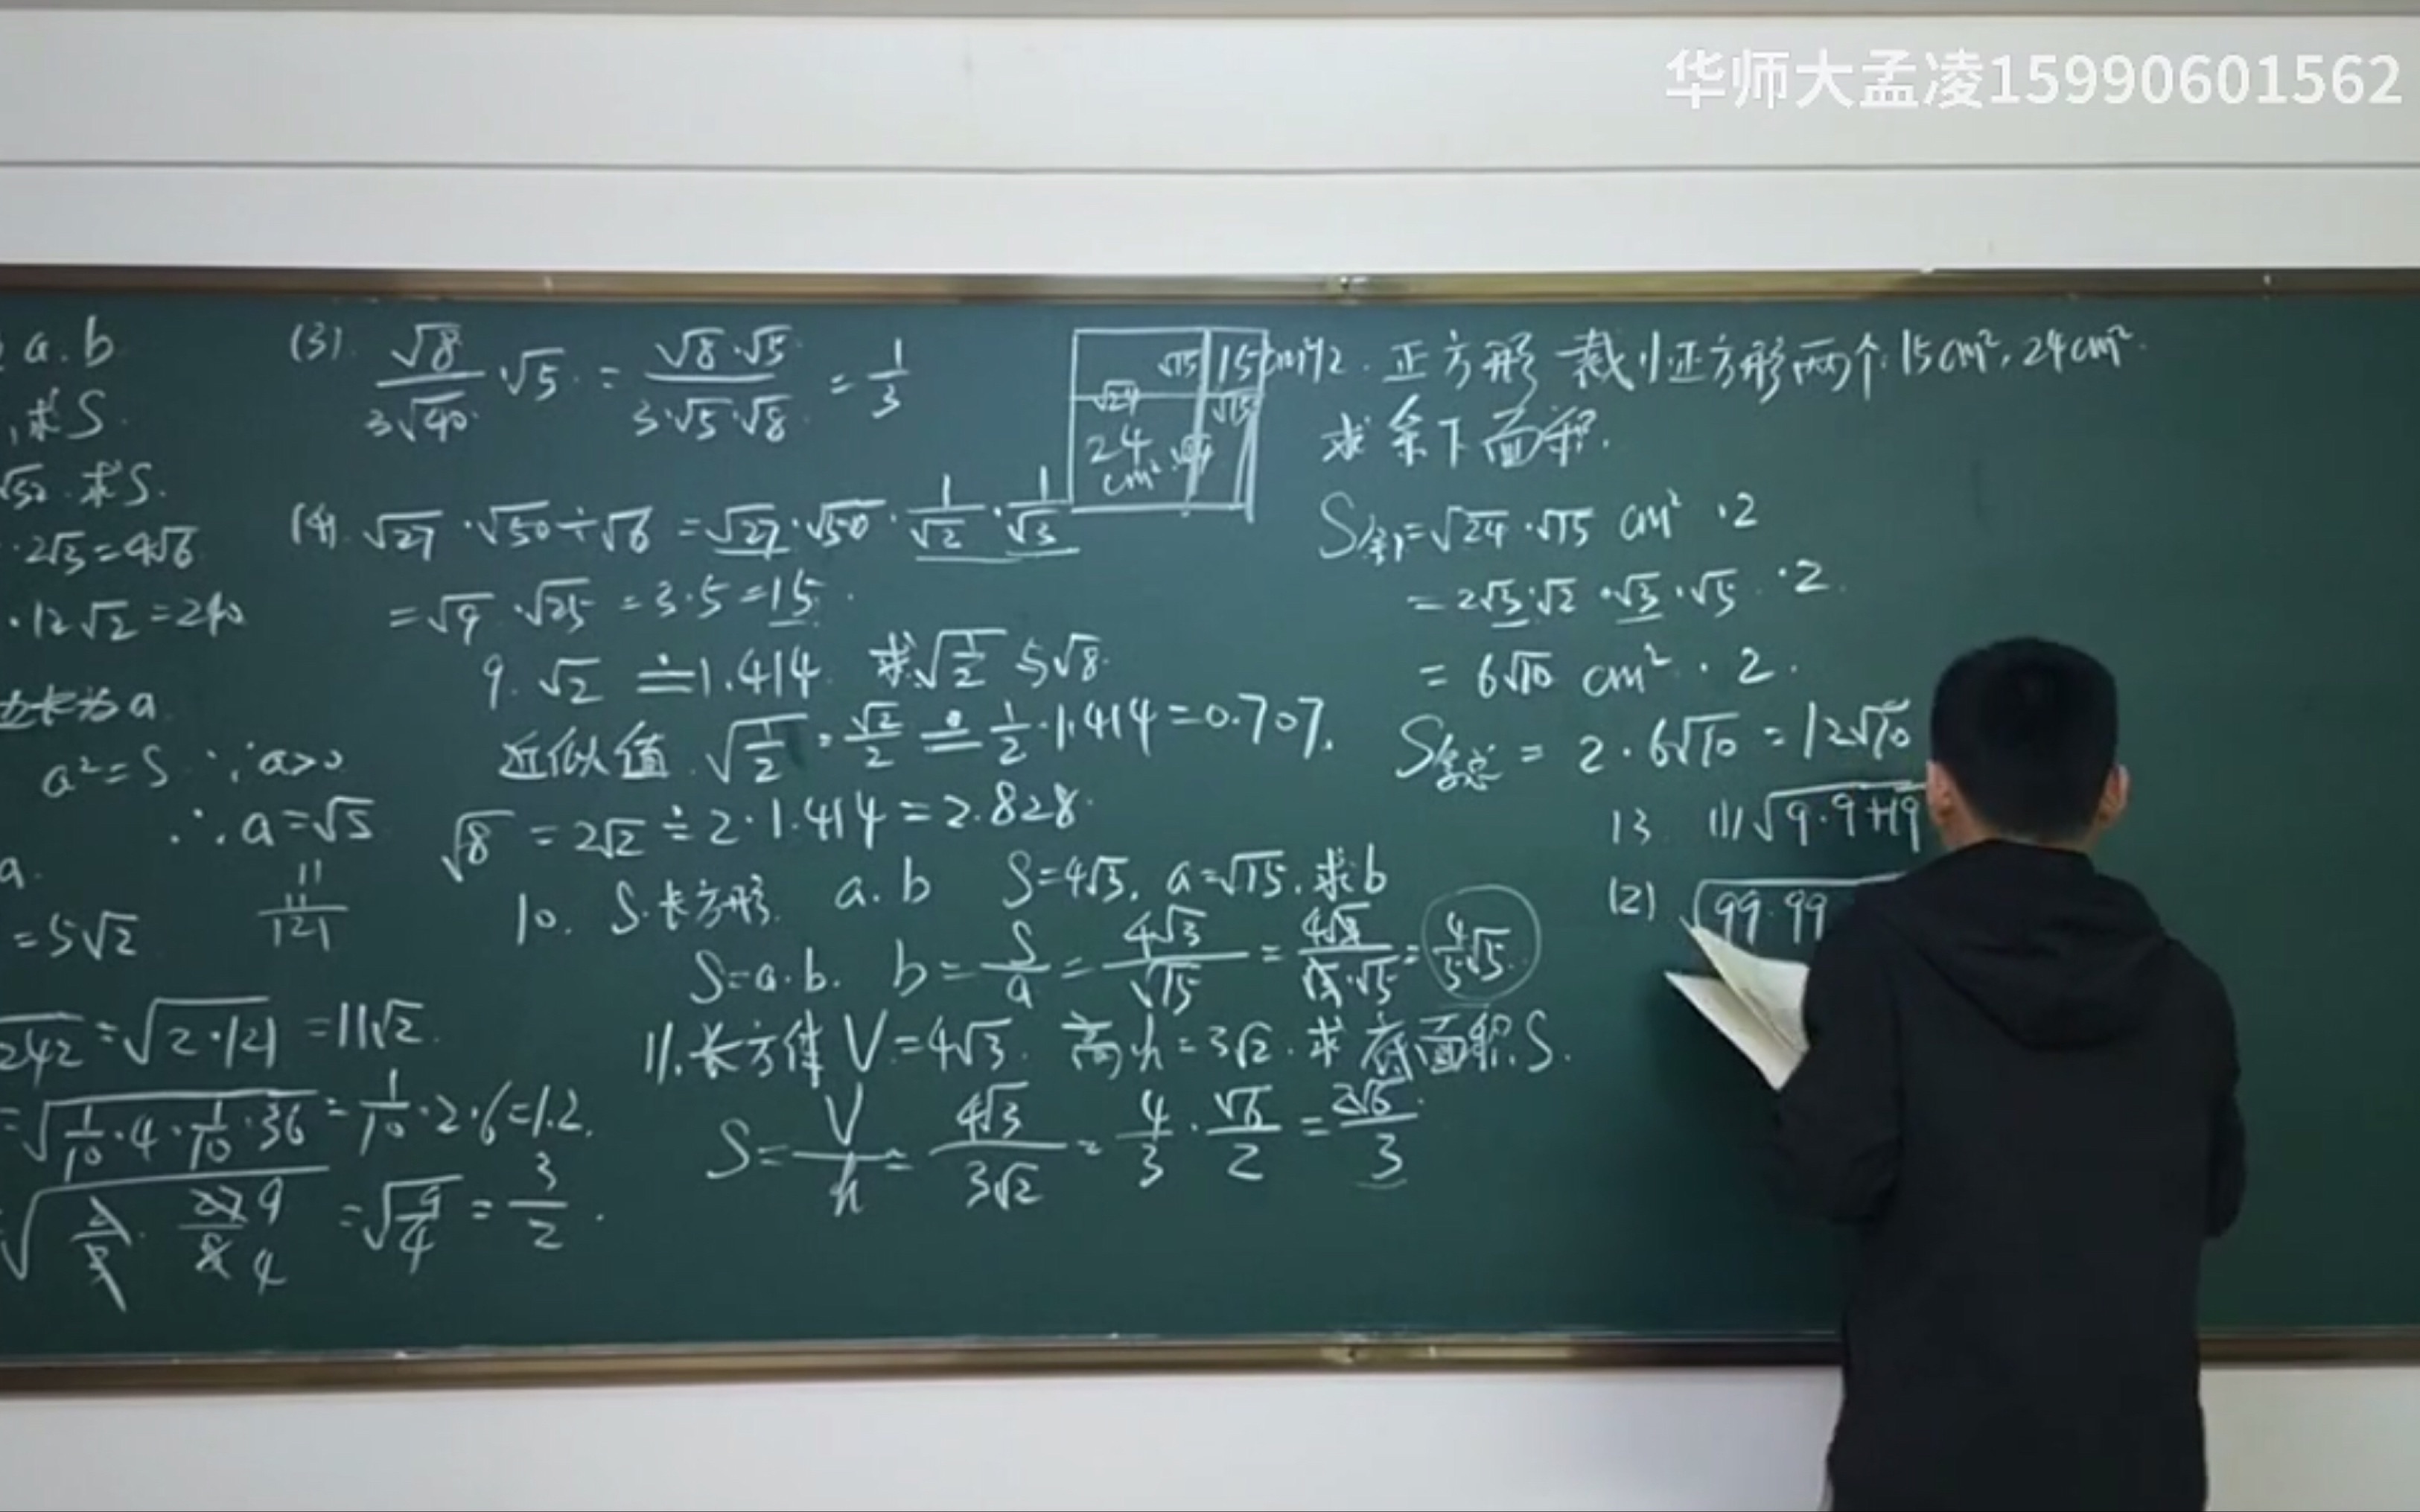 华师大孟凌15990601562
a.b
,求S.
√52.求S.
·2√3=4√6
·12√2=240
边长为a
a²=S ∵a>0
∴a=√S
a.
=5√2
11
11
121
242=√2·121=11√2.
=√1/10·4·1/10·36=1/10·2·6=1.2.
=√9/4=3/2.
(3). √8/3√40·√5.=√8·√5/3·√5·√8.=1/3
(4). √27·√50÷√6=√27·√50·1/√2·1/√3
=√9·√25=3·5=15.
9. √2≐1.414. 求√1/2与√8.
近似值.√1/2=√2/2≐1/2·1.414=0.707.
√8=2√2≐2·1.414=2.828.
10. S.长方形. a.b S=4√3, a=√15.求b
S=a·b. b=S/a=4√3/√15=4√3/√3·√5=4/5√5.
11.长方体 V=4√3. 高h=3√2.求底面积S.
S=V/h=4√3/3√2=4/3·√6/2=2√6/3.
√15 15cm²
√24 √15
24 √24
cm²
12.正方形 裁小正方形两个.15cm²,24cm².
求余下面积.
S余1=√24·√15 cm²·2
=2√3·√2·√3·√5·2.
=6√10 cm²·2.
S余总=2·6√10=12√10
13. (1)√9·9+19
(2) √99·99